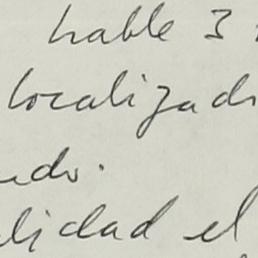 hable 3
localizad
ado.
lidad el